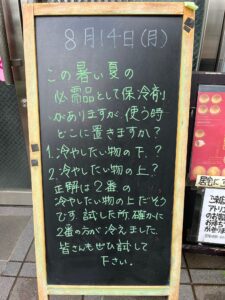 8月14日(月)
この暑い夏の
必需品として保冷剤
がありますが、使う時
どこに置きますか?
1.冷やしたい物の下.?
2.冷やしたい物の上.?
正解は2番の
冷やしたい物の上だそう
です.試した所.確かに
2番の方が冷えました.
皆さんもぜひ試して
下さい。